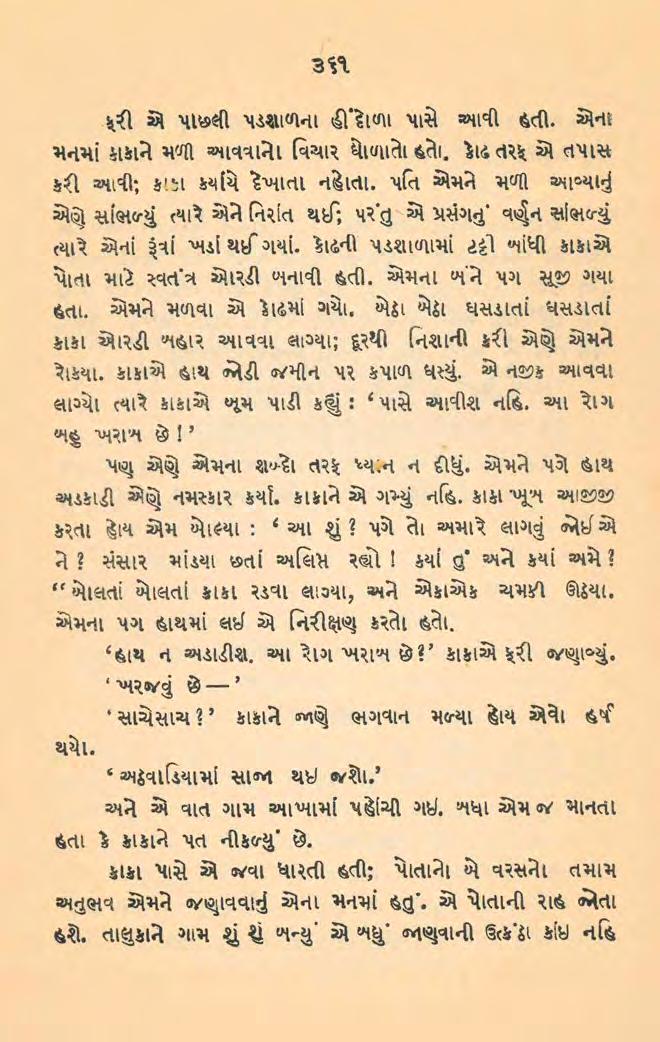 ૩૬૧
ફરી એ પાછલી પડશાળના હીંદોળા પાસે આવી હતી. એના
મનમાં કાકાને મળી આવવાનો વિચાર ઘોળાતો હતો. કોઢ તરફ એ તપાસ
કરી આવી; કાકા કયાંયે દેખાતા નહોતા. પતિ એમને મળી આવ્યાનું
એણે સાંભળ્યું ત્યારે એને નિરાંત થઈ; પરંતુ એ પ્રસંગનું વર્ણન સાંભળ્યું
ત્યારે એનાં રૂંવાં ખડાં થઈ ગયાં. કોઢની પડશાળામાં ટટ્ટી બાંધી કાકાએ
પોતા માટે સ્વતંત્ર ઓરડી બનાવી હતી. એમના બંને પગ સૂજી ગયા
હતા. એમને મળવા એ કોઢમાં ગયો. બેઠા બેઠા ઘસડાતાં ઘસડાતાં
કાકા ઓરડી બહાર આવવા લાગ્યા; દૂરથી નિશાની કરી એણે એમને
રોકયા. કાકાએ હાથ જોડી જમીન પર કપાળ ઘસ્યું. એ નજીક આવવા
લાગ્યો ત્યારે કાકાએ બૂમ પાડી કહ્યું : ‘પાસે આવીશ નહિ. આ રોગ
બહુ ખરાબ છે !’
પણ એણે એમના શબ્દો તરફ ધ્યાન ન દીધું. એમને પગે હાથ
અડકાડી એણે નમસ્કાર કર્યા. કાકાને એ ગમ્યું નહિ. કાકા ખૂબ આજીજી
કરતા હોય એમ બોલ્યા : ‘ આ શું ? પગે તો અમારે લાગવું જોઈએ
ને ? સંસાર માંડયા છતાં અલિપ્ત રહ્યો ! કયાં તું અને કયાં અમે ?
“બોલતાં બોલતાં કાકા રડવા લાગ્યા, અને એકાએક ચમકી ઊઠયા.
એમના પગ હાથમાં લઈ એ નિરીક્ષણ કરતો હતો.
‘હાથ ન અડાડીશ. આ રોગ ખરાબ છે?’ કાકાએ ફરી જણાવ્યું.
‘ ખરજવું છે — ’
‘ સાચેસાચ ?’ કાકાને જાણે ભગવાન મળ્યા હોય એવો હર્ષ
થયો.
‘ અઠવાડિયામાં સાજા થઈ જશો.’
અને એ વાત ગામ આખામાં પહોંચી ગઈ. બધા એમ જ માનતા
હતા કે કાકાને પત નીકળ્યું છે.
કાકા પાસે એ જવા ધારતી હતી; પોતાનો બે વરસનો તમામ
અનુભવ એમને જણાવવાનું એના મનમાં હતું. એ પોતાની રાહ જોતા
હશે. તાલુકાને ગામ શું શું બન્યું એ બધું જાણવાની ઉત્કંઠા કાંઈ નહિ